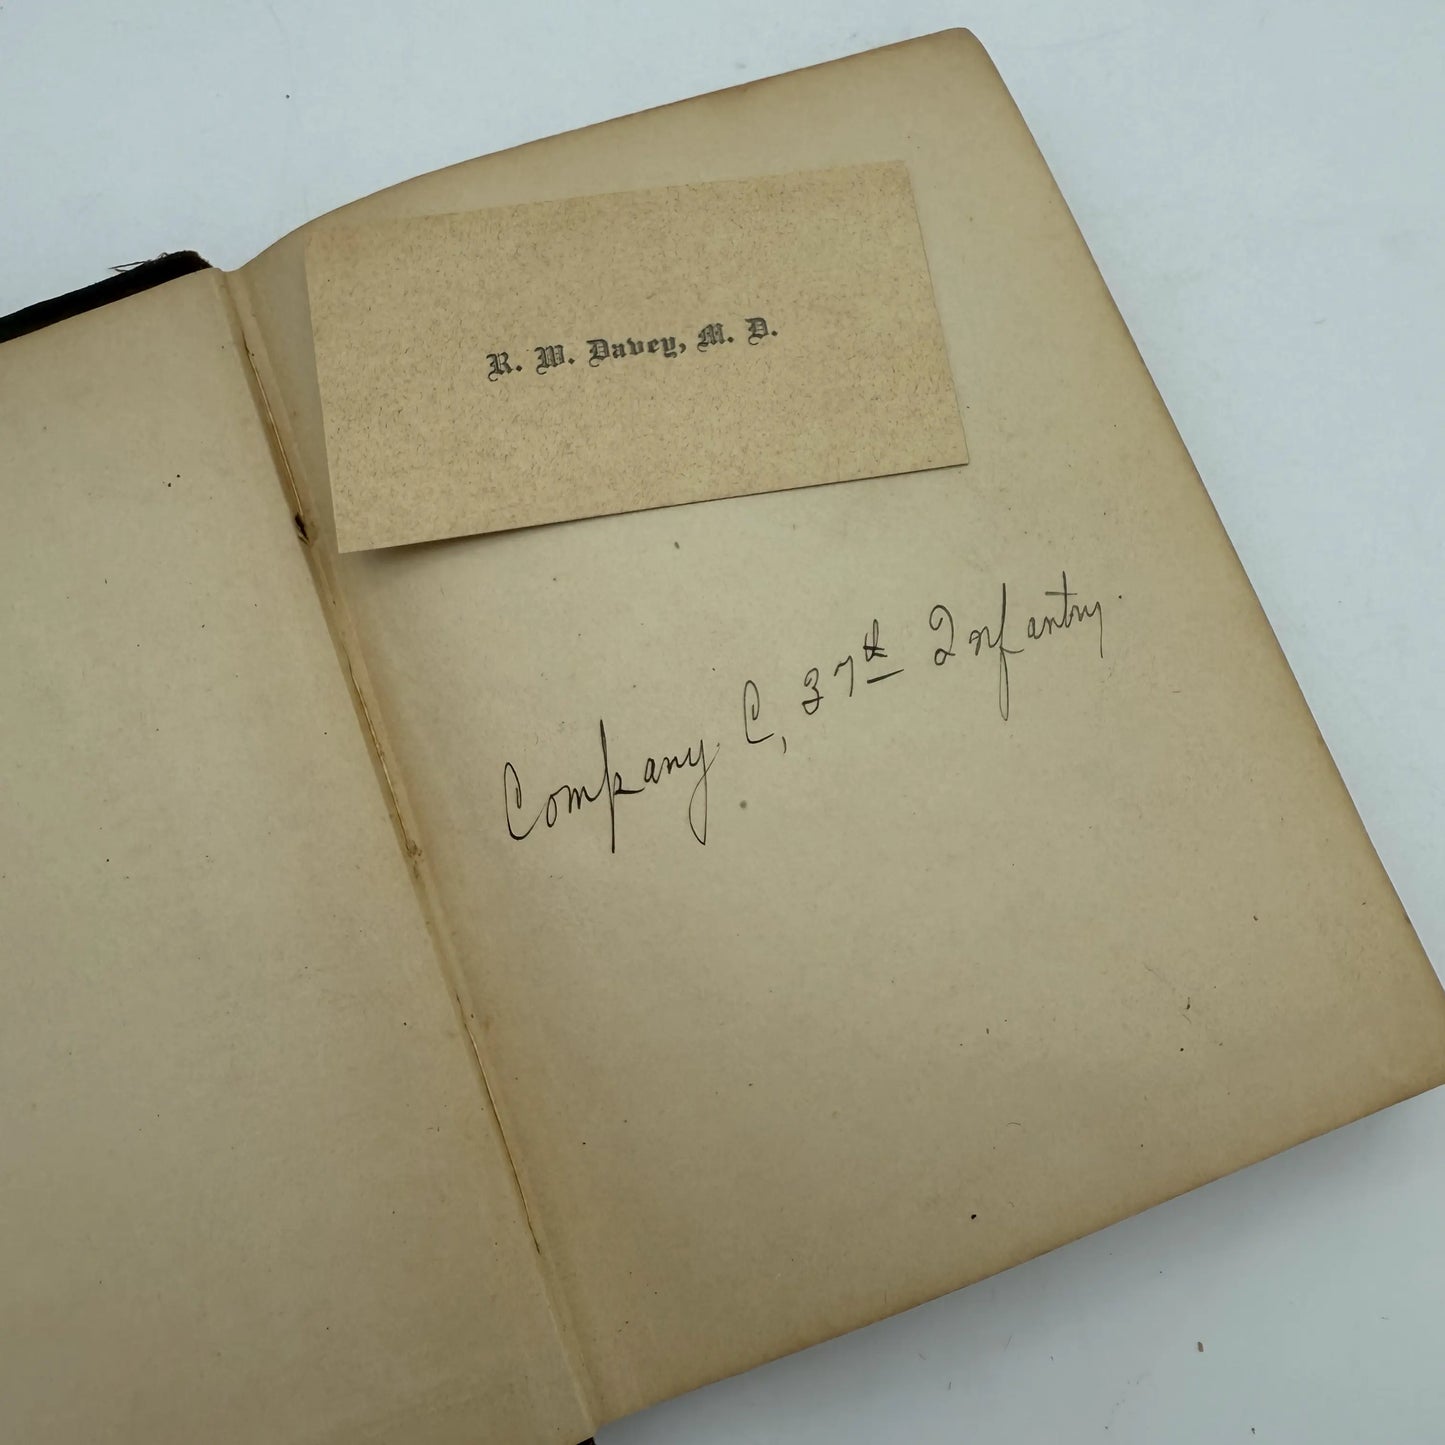 R. W. Davey, M. D.
Company C, 37th Infantry.